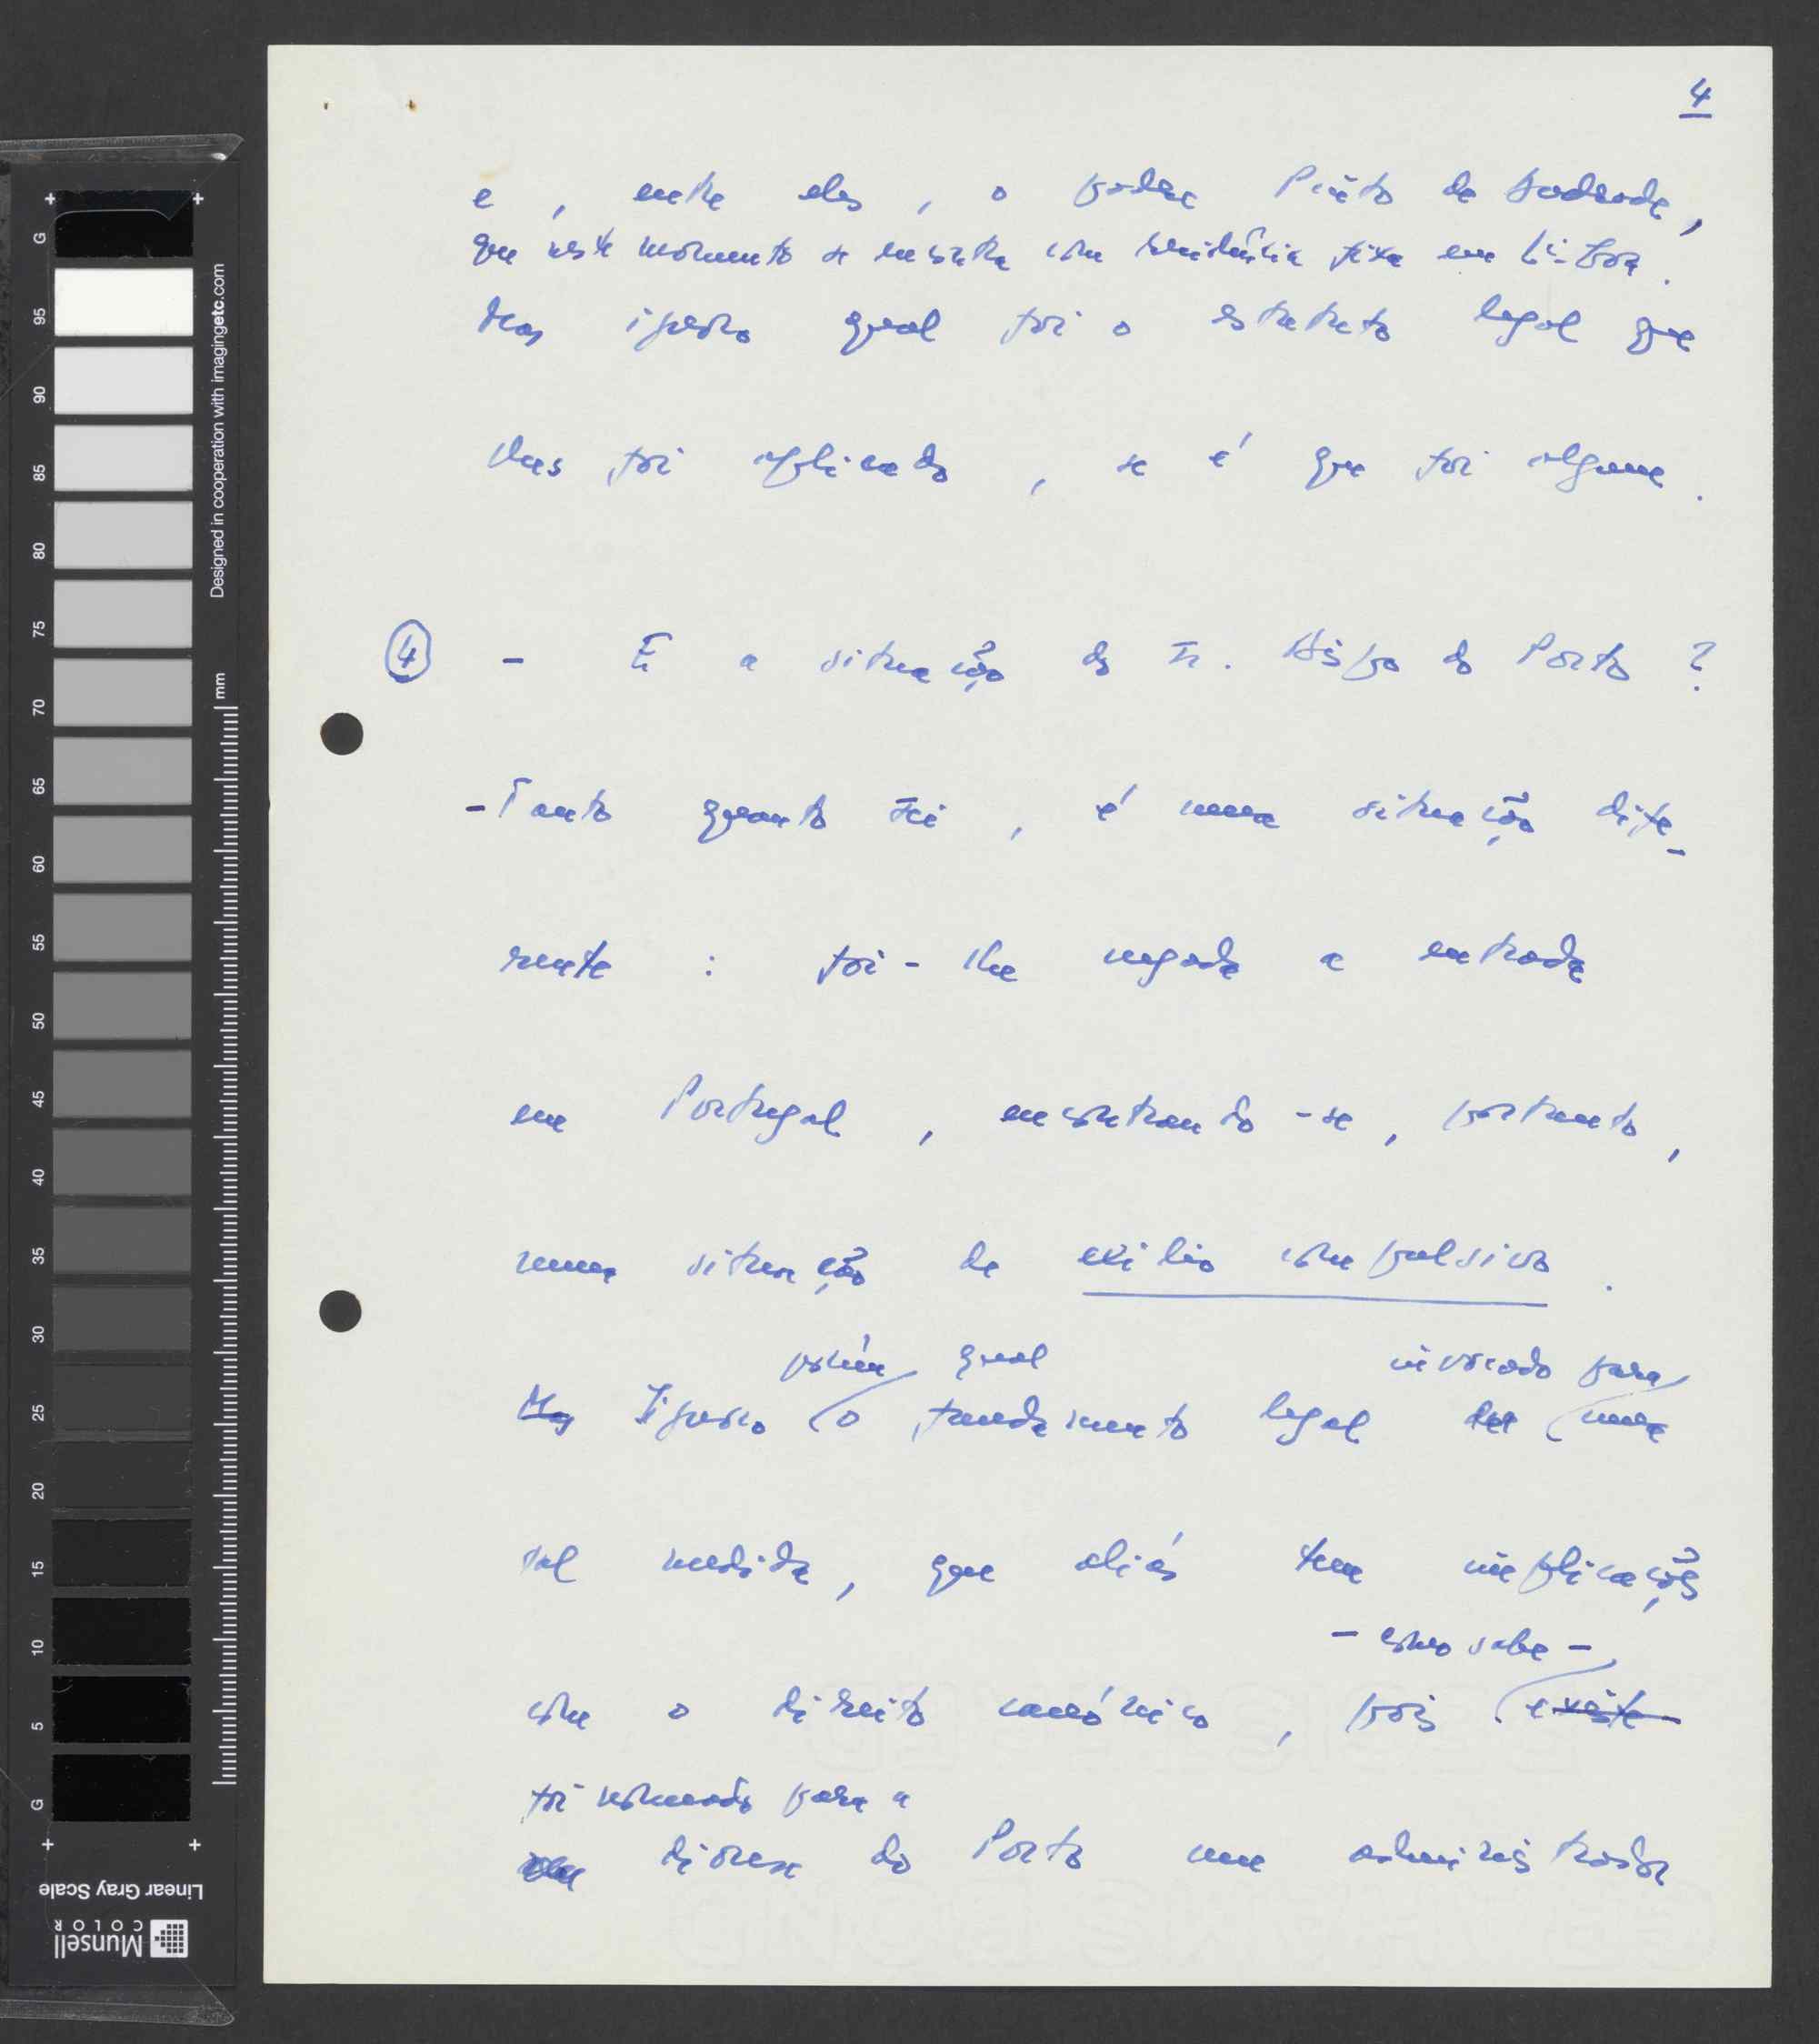 4
e, entre eles, o padre Pinto de Andrade,
que neste momento se encontra com residência fixa em Lisboa.
Mas ignoro qual foi o estatuto legal que
lhes foi aplicado, se é que foi algum.
④ - E a situação do Sr. Bispo do Porto?
- Tanto quanto sei, é uma situação dife-
rente: foi-lhe negada a entrada
em Portugal, encontrando-se, portanto,
numa situação de exílio compulsivo.
porém qual invocado para
Mas Ignoro o fundamento legal de uma
tal medida, que aliás tem implicações
- como sabe -
com o direito canónico, pois existe
foi nomeado para a
diocese do Porto um administrador
G 95 90 85 80 75 70 65 60 55 50 45 40 35 30 25 20 15 10 5 G
mm
Designed in cooperation with imagingetc.com
Linear Gray Scale
Munsell
COLOR